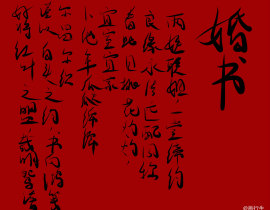 婚书
两姓联姻 一堂缔约
良缘永结 匹配同称
看此日桃花灼灼
宜室宜家
卜他年瓜瓞绵绵
尔昌尔炽
谨以白头之约 书向鸿笺
好将红叶之盟 载明鸳谱